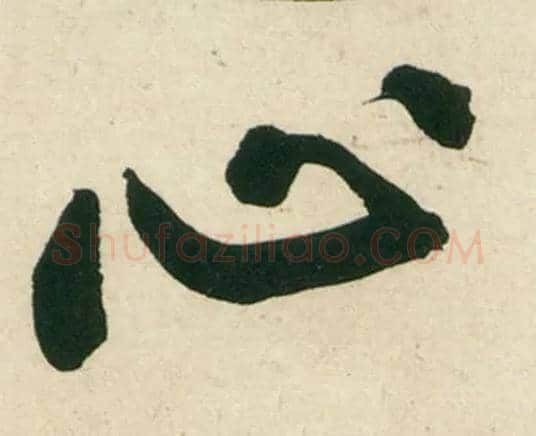 心
Shufaziliao.COM